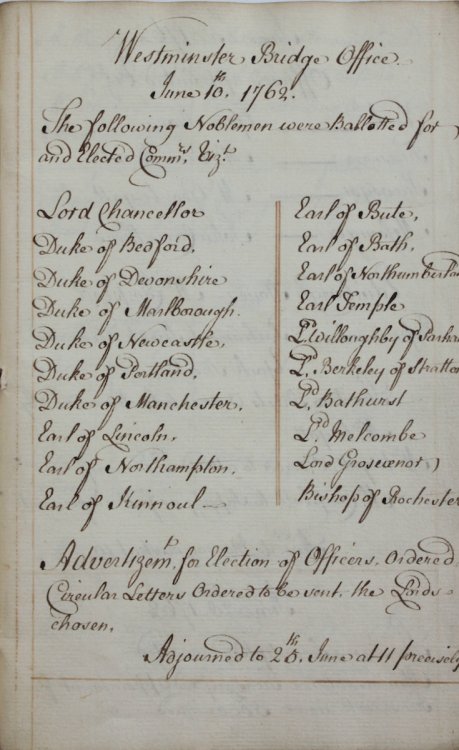 Westminster Bridge Office.
June 10.th 1762.
The following Noblemen were Ballotted for
and Elected Comm.rs Viz.t
Lord Chancellor
Duke of Bedford,
Duke of Devonshire
Duke of Marlborough.
Duke of Newcastle,
Duke of Portland,
Duke of Manchester,
Earl of Lincoln,
Earl of Northampton,
Earl of Kinnoul —
Earl of Bute,
Earl of Bath,
Earl of Northumberla
Earl Temple
L.d Willoughby of Parha
L.d Berkeley of Stratton
L.d Bathurst
L.d Melcombe
Lord Grosvenor
Bishop of Rochester
Advertizem.t for Election of Officers, Ordered
Circular Letters Ordered to be sent, the Lords
chosen,
Adjourned to 25.th June at 11 precisely